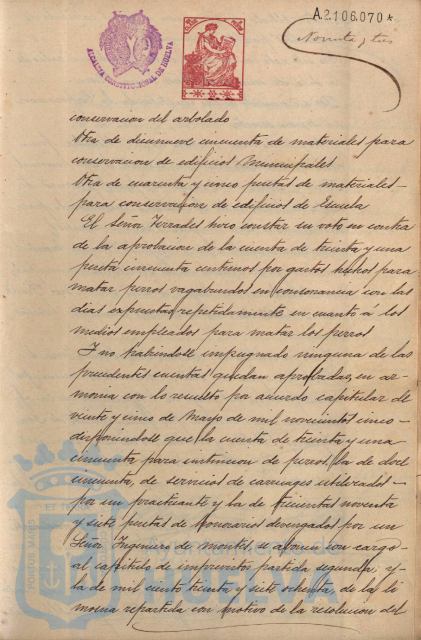 A.2.106.070*
Noventa y tres
ALCALDIA CONSTITUCIONAL DE HUELVA
conservacion del arbolado
Otra de diecinueve cincuenta de materiales para
conservacion de edificios Municipales
Otra de cuarenta y cinco pesetas de materiales
para conservacion de edificios de Escuela
El Señor Terrades hizo constar su voto en contra
de la aprobacion de la cuenta de treinta y una
peseta cincuenta centimos por gastos hechos para
matar perros vagabundos en consonancia con las
ideas expuestas repetidamente en cuanto a los
medios empleados para matar los perros
Y no habiendose impugnado ninguna de las
precedentes cuentas quedan aprobadas, en ar-
monia con lo resuelto por acuerdo capitular de
veinte y cinco de Mayo de mil novecientos cinco
disponiendose que la cuenta de treinta y una
cincuenta para extincion de perros, la de doce
cincuenta, de servicios de carruages utilizados
por un practicante y la de trescientas noventa
y siete pesetas de honorarios devengados por un
Señor Ingeniero de montes, se abonen con cargo
al capitulo de imprevistos partida segunda, y
la de mil ciento treinta y siete ochenta, de la li
mosna repartida con motivo de la resolucion del